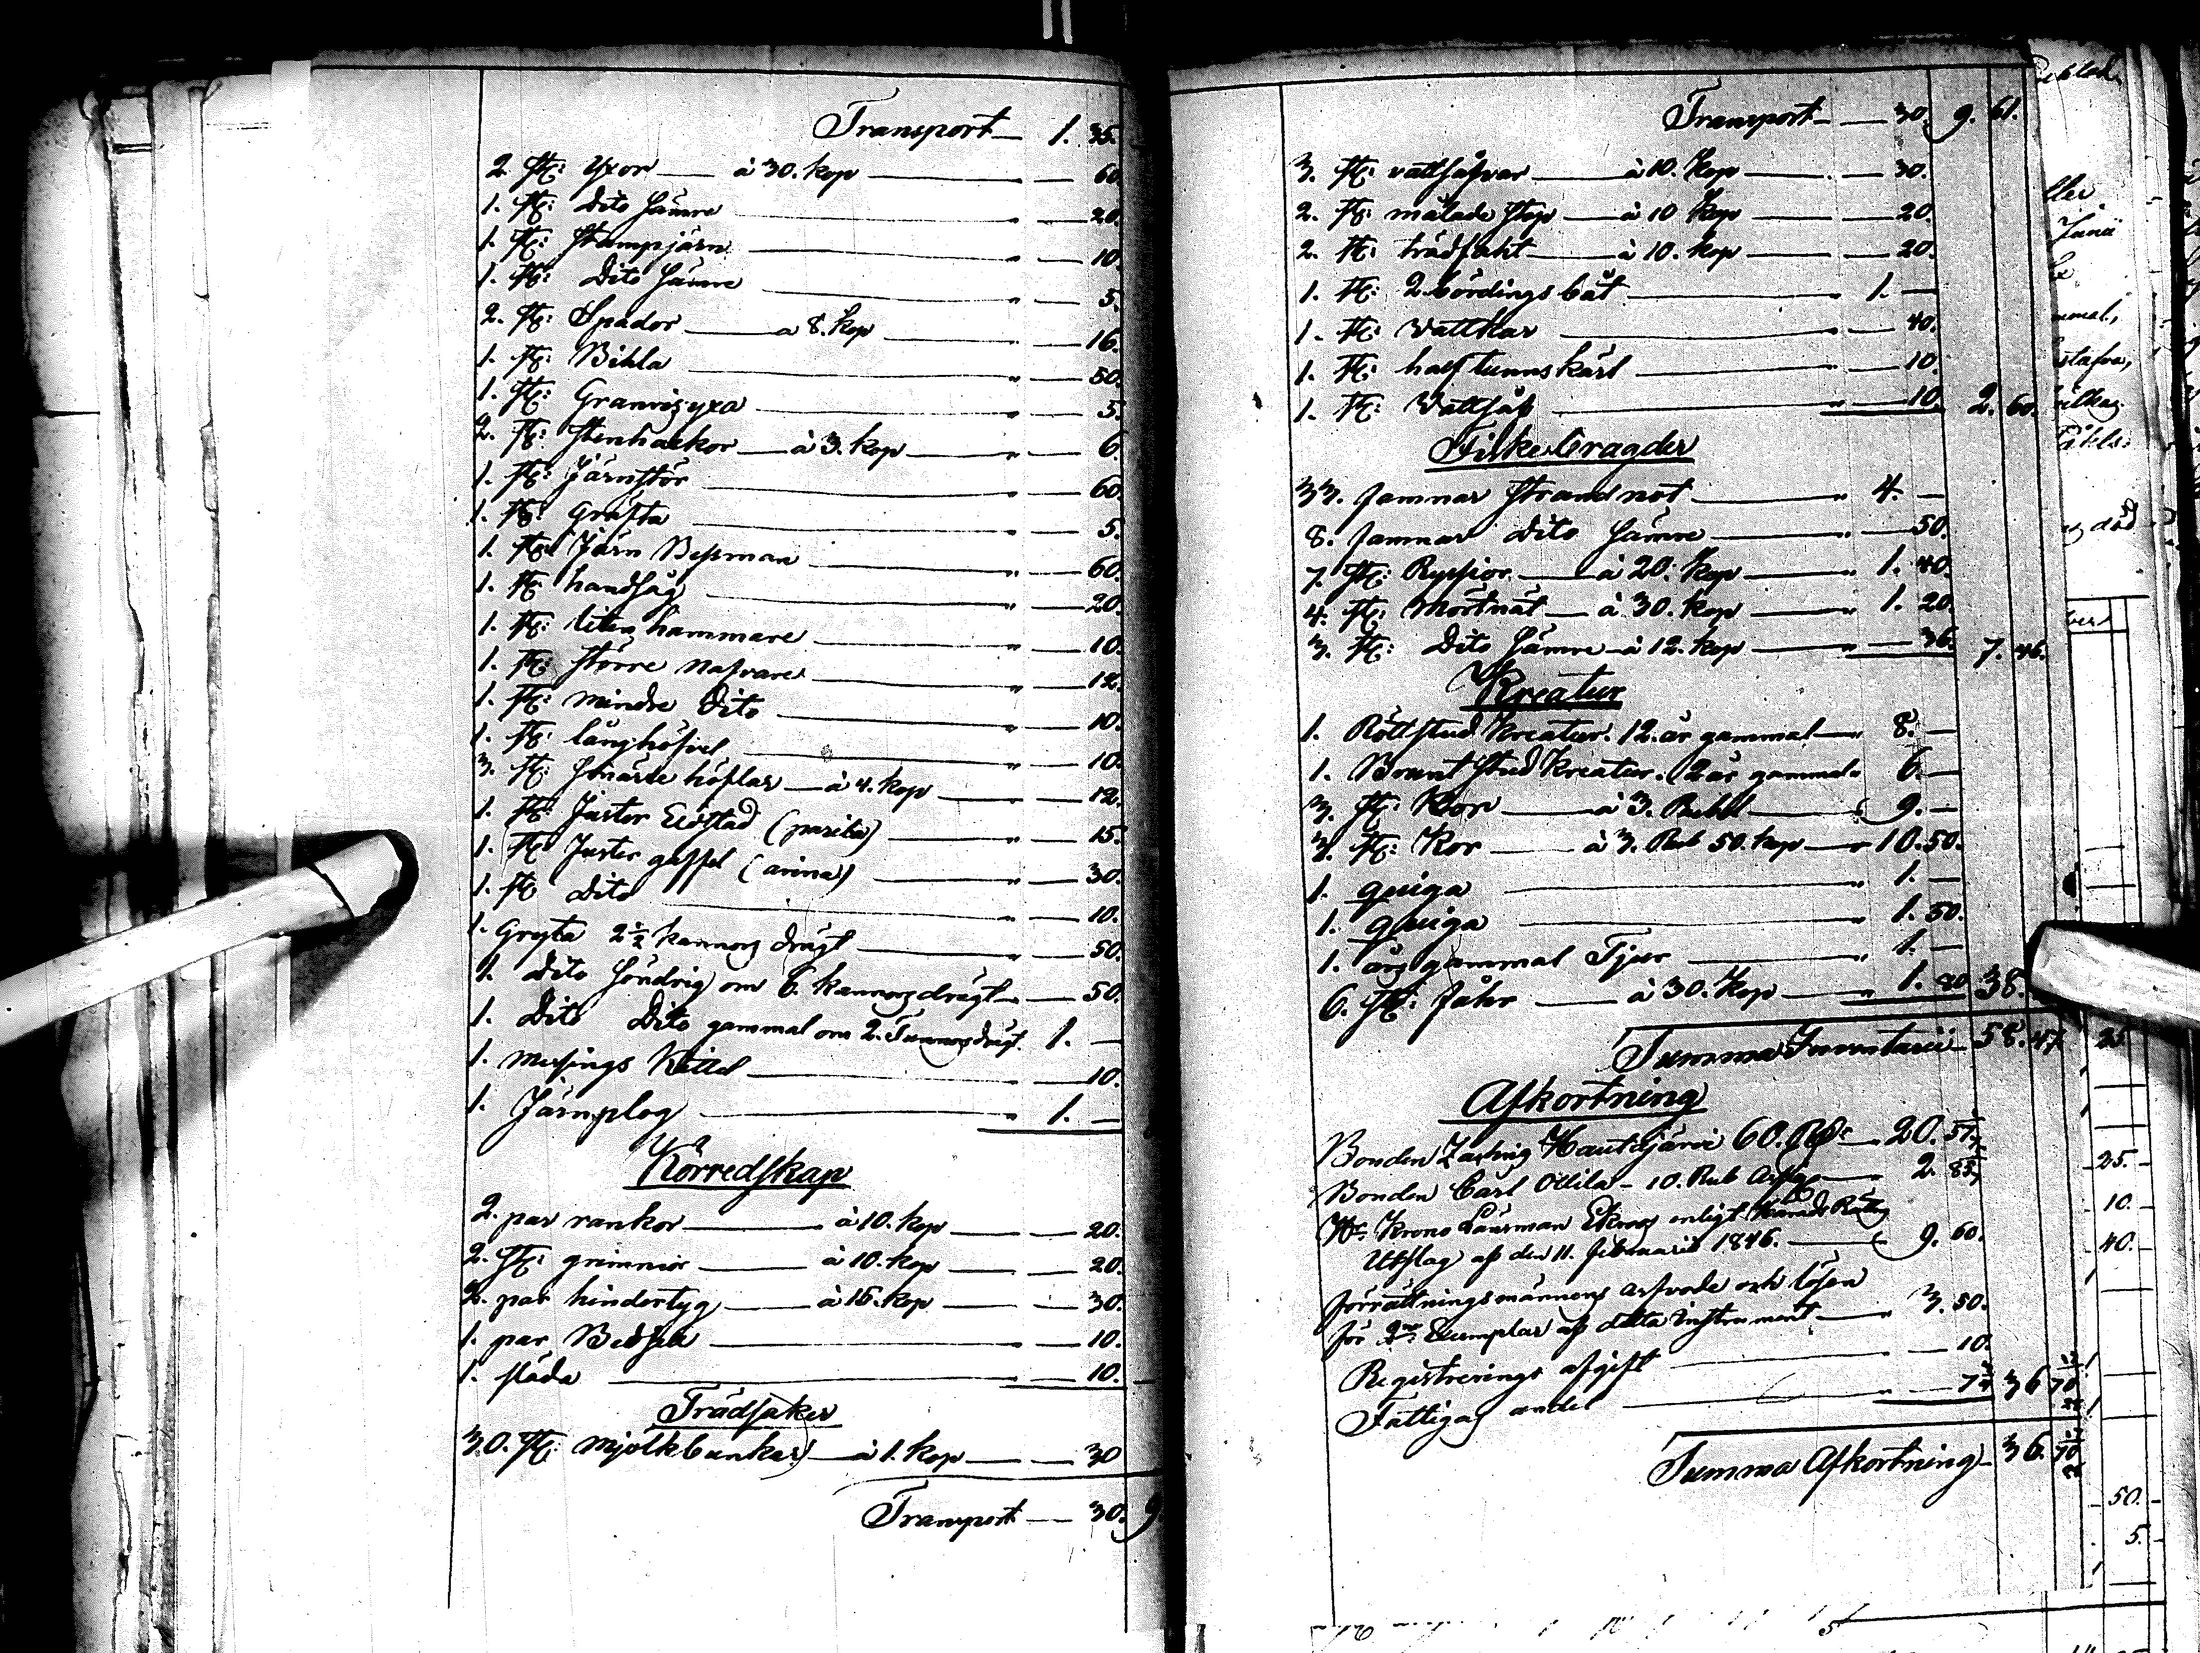 Transport — 1. 35.
2. St: Yxor — à 30. kop — " — 60.
1. St: Dito sämre — " — 20.
1. St: Stampjärn — " — 10.
1. St: Dito sämre — " — 5.
2. St: Spador — a 8. kop — " — 16.
1. St: Bihla — " — 50.
1. St: Granrisyxa — " — 5.
2. St: Stenhackor — à 3. kop — " — 6.
1. St: Järnstör — " — 60.
1. St: Gräfta — " — 5.
1. St: Järn Bessman — " — 60.
1. St: handsåg — " — 20.
1. St: liten hammare — " — 10.
1. St: större nafvare — " — 12.
1. St: mindre Dito — " — 10.
1. St: långhöfvel — " — 10.
3. St: Smärde höflar — à 4. kop — " — 12.
1. St: Juster Eldstad (parila) — " — 15.
1. St Juster gaffel (arina) — " — 30.
1. St Dito — " — 10.
1. Gryta 2½ kannors drägt — " — 50.
1. Dito Söndrig om 6. kannors drägt — — 50.
1. Dito Dito gammal om 2. Tunnors drägt. 1. —
1. Messings Kittel — — 10.
1. Järnplog — " 1. —
Körredskap
2. par rankor — à 10. kop — — 20.
2. St: grimmor — à 10. kop — — 20.
2. par hindertyg — à 15. kop — — 30.
1. par — — 10.
1. släda — " — 10.
Trädsaker
30. St: mjölkbunkar — à 1. kop — — 30
Transport — 30. 9.
Transport — — 30. 9. 61.
3. St: vattsåfvar — à 10. kop — — 30.
2. St: målade Stop — à 10 kop — — 20.
2. St: trädfaht — à 10. kop — — 20.
1. St: 2 bördings båt — " 1. —
1. St: Vattkar — " — 40.
1. St: half tunns kärl — " — 10.
1. St: Vattsåf — " — 10. 2. 60.
Fiskebragder
33. famnar Strandnot — " 4. —
8. famnar Dito Sämre — " — 50.
7. St: Ryssior — à 20. kop — " 1. 40.
4. St: Mörtnät — à 30. kop — " 1. 20.
3. St: Dito Sämre — à 12. kop — " — 36. 7. 46.
Kreatur
1. Rött stud Kreatur. 12. år gammal — " 8. —
1. Brunt Stud Kreatur. 12 år gammal " 6. —
3. St: Kor — à 3. Rubl — 9. —
3. St: Kor — à 3. Rub 50. kop — " 10. 50.
1. quiga — " 1. —
1. quiga — " 1. 50.
1. års gammal Tjur — " 1. —
6. St: får — à 30. kop — " 1. 80 38.
Summa Inventarii — 58. 47.
Afkortning
Bonden Hautajärvi 60. — 20. 57
Bonden Carl Ollila — 10. Rub — 2. 85
Krono Länsman Ekroos enligt Härads Rätts
Utslag af den 11. Februarii 1846. — 9. 60.
förrättningsmännens arfvode och lösen
för 2ne Exemplar af detta instrument — " 3. 50.
Registrerings afgift — — 10.
Fattigas andel — " — 7 36. 70
Summa Afkortning — 36. 70